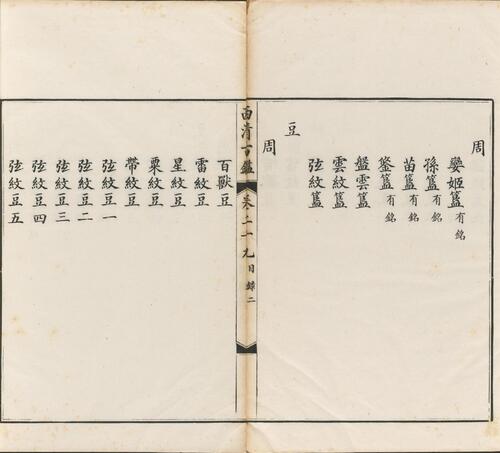 周
嬰姬簠有銘
孫簠有銘
苗簠有銘
簠有銘
盤雲簠
雲紋簠
弦紋簠
豆
周
西清古鑑 卷二十九目錄二
百獸豆
雷紋豆
星紋豆
粟紋豆
帶紋豆
弦紋豆一
弦紋豆二
弦紋豆三
弦紋豆四
弦紋豆五